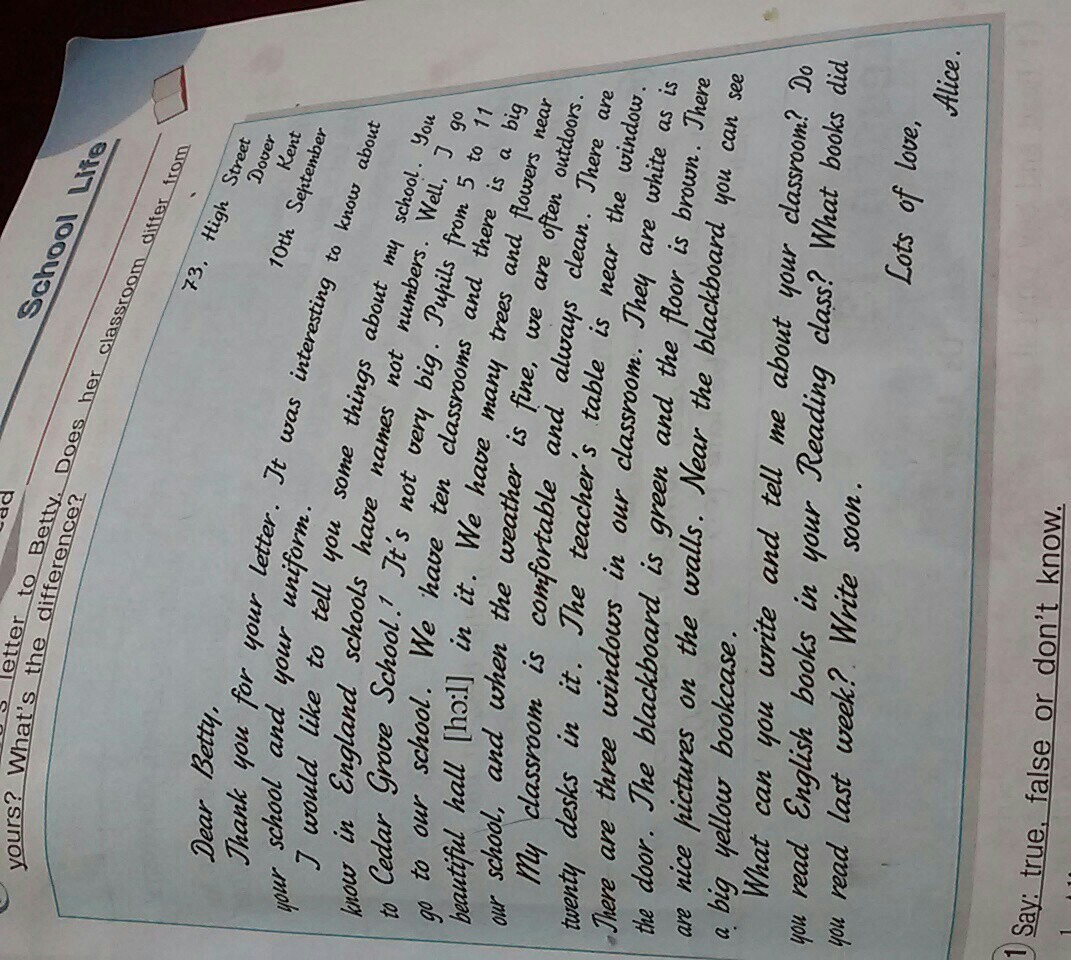 School Life
letter to Betty. Does her classroom differ from
yours? What's the difference?
73, High Street
Dover
Kent
10th September
Dear Betty,
Thank you for your letter. It was interesting to know about
your school and your uniform.
I would like to tell you some things about my school. You
know in England schools have names not numbers. Well, I go
to Cedar Grove School.¹ It's not very big. Pupils from 5 to 11
go to our school. We have ten classrooms and there is a big
beautiful hall [hɔ:l] in it. We have many trees and flowers near
our school, and when the weather is fine, we are often outdoors.
My classroom is comfortable and always clean. There are
twenty desks in it. The teacher's table is near the window.
There are three windows in our classroom. They are white as is
the door. The blackboard is green and the floor is brown. There
are nice pictures on the walls. Near the blackboard you can see
a big yellow bookcase.
What can you write and tell me about your classroom? Do
you read English books in your Reading class? What books did
you read last week? Write soon.
Lots of love,
Alice.
1 Say: true, false or don't know.